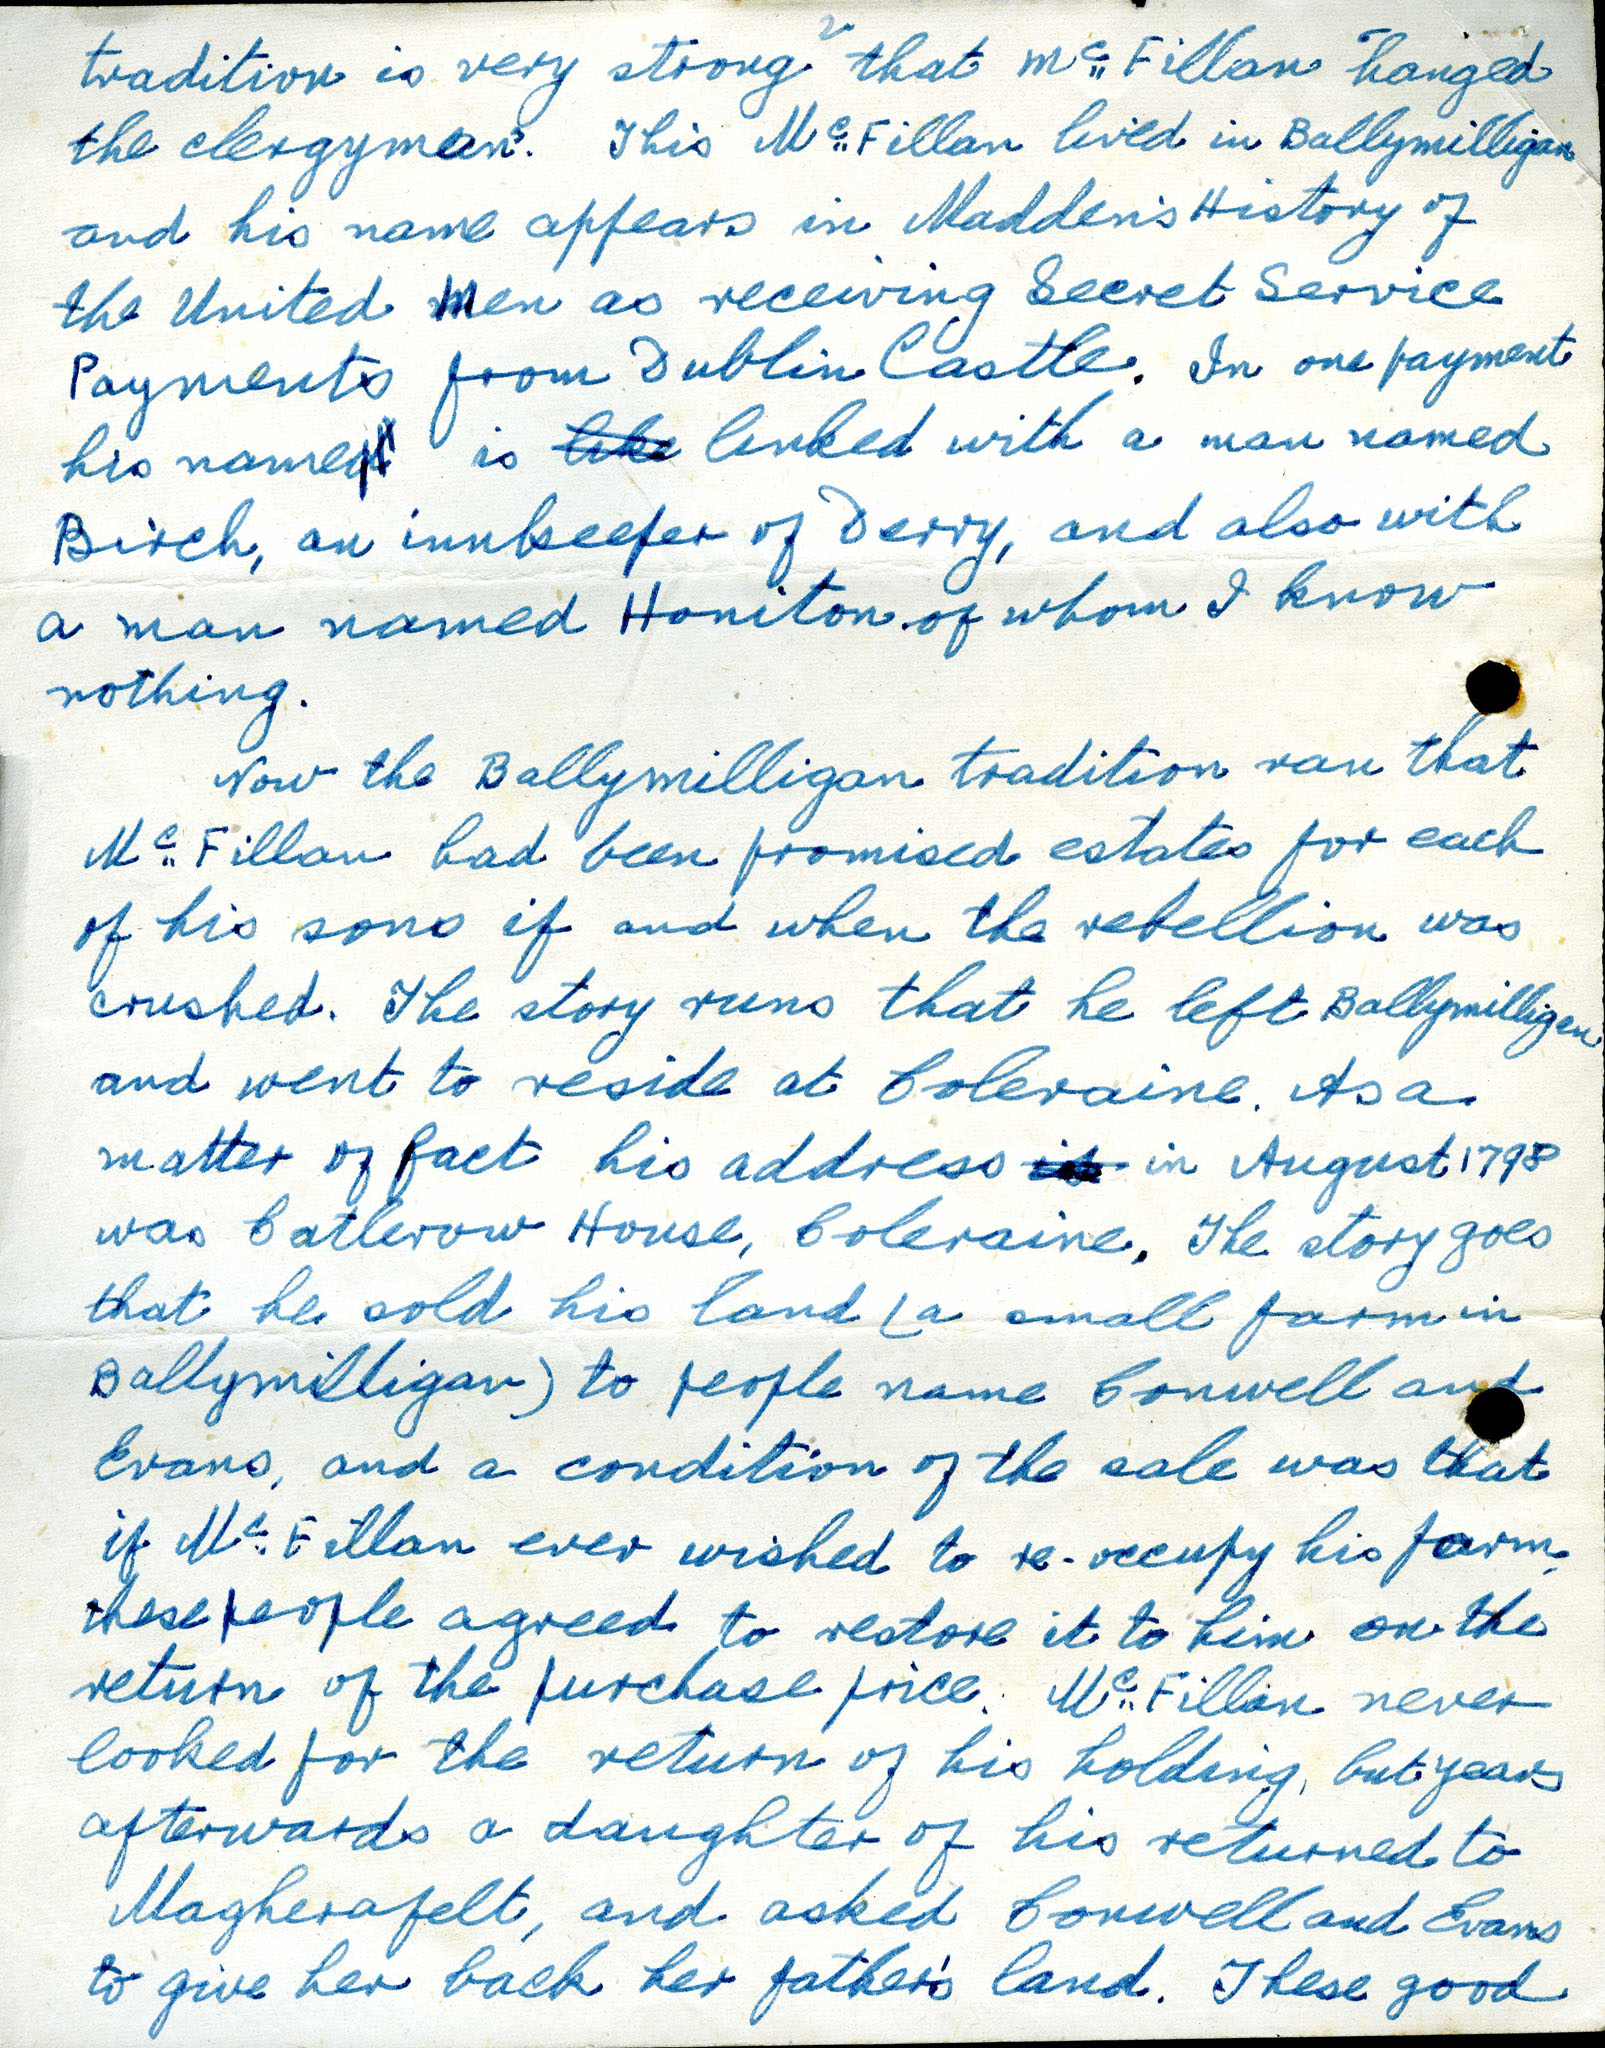 2
tradition is very strong that Mc Fillan hanged
the clergyman. This Mc Fillan lived in Ballymilligan
and his name appears in Madden's History of
the United Men as receiving Secret Service
Payments from Dublin Castle. In one payment
his name is like linked with a man named
Birch, an innkeeper of Derry, and also with
a man named Honiton of whom I know
nothing.
Now the Ballymilligan tradition ran that
Mc Fillan had been promised estates for each
of his sons if and when the rebellion was
crushed. The story runs that he left Ballymilligan
and went to reside at Coleraine. As a
matter of fact his address in August 1798
was Catlerow House, Coleraine. The story goes
that he sold his land (a small farm in
Ballymilligan) to people name Conwell and
Evans, and a condition of the sale was that
if Mc Fillan ever wished to re-occupy his farm,
these people agreed to restore it to him on the
return of the purchase price. Mc Fillan never
looked for the return of his holding, but years
afterwards a daughter of his returned to
Magherafelt, and asked Conwell and Evans
to give her back her father's land. These good